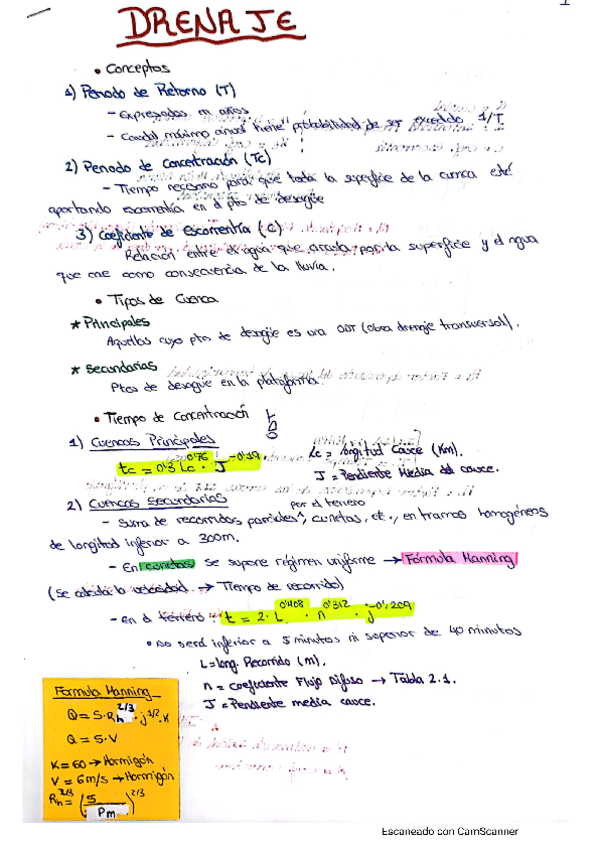 1
DRENAJE
• Conceptos
1) Periodo de Retorno (T)
- Expresados en años
- Caudal máximo anual tiene probabilidad de ser excedido 1/T
2) Periodo de concentración (Tc)
- Tiempo necesario para que toda la superficie de la cuenca esté
aportando escorrentía en el pto de desagüe
3) Coeficiente de Escorrentía (C)
Relación entre el agua que circula por la superficie y el agua
que cae como consecuencia de la lluvia.
• Tipos de Cuenca
* Principales
Aquellas cuyo pto de desagüe es una ODT (obra drenaje transversal).
* Secundarias
Ptos de desagüe en la plataforma.
• Tiempo de Concentración
1) Cuencas Principales
tc = 0'3 Lc^0'76 · J^-0'19
Lc = longitud Cauce (Km).
J = Pendiente Media del cauce.
2) Cuencas Secundarias
por el terreno
- Suma de recorridos parciales^, cunetas, etc., en tramos homogéneos
de longitud inferior a 300m.
- En cunetas se supone régimen uniforme → Fórmula Manning
(Se calcula la velocidad → Tiempo de recorrido)
- En el terreno: t = 2 · L^0'408 · n^0'312 · j^-0'209
• no será inferior a 5 minutos ni superior de 40 minutos
L = long. Recorrido (m).
n = coeficiente Flujo Difuso → Tabla 2.1.
J = Pendiente media cauce.
Formula Manning
Q = S·Rh^2/3 · j^1/2·K
Q = S·V
K = 60 → Hormigón
V = 6m/s → Hormigón
Rh^2/3 = (S/Pm)^2/3
Escaneado con CamScanner